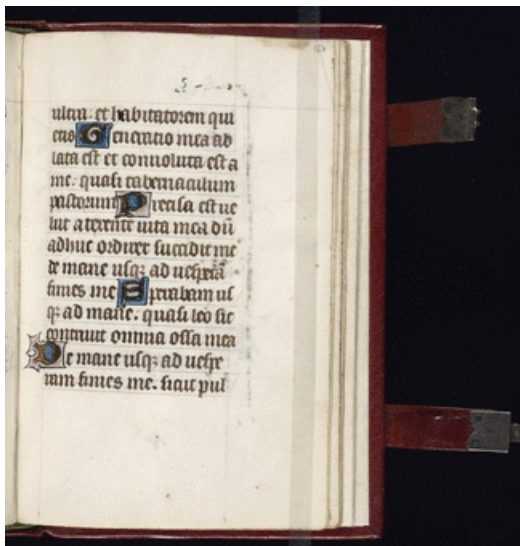 ultra: et habitatorem qui
etis Generatio mea ab
lata est et conuoluta est a
me. quasi tabernaculum
pastorum Precisa est ue
lut a texente uita mea dū
adhuc ordirer succidit me
de mane usqꝫ ad uesperā
finies me Sperabam us
qꝫ ad mane. quasi leo sic
contriuit omnia ossa mea
De mane usqꝫ ad uespe
ram finies me. sicut pul